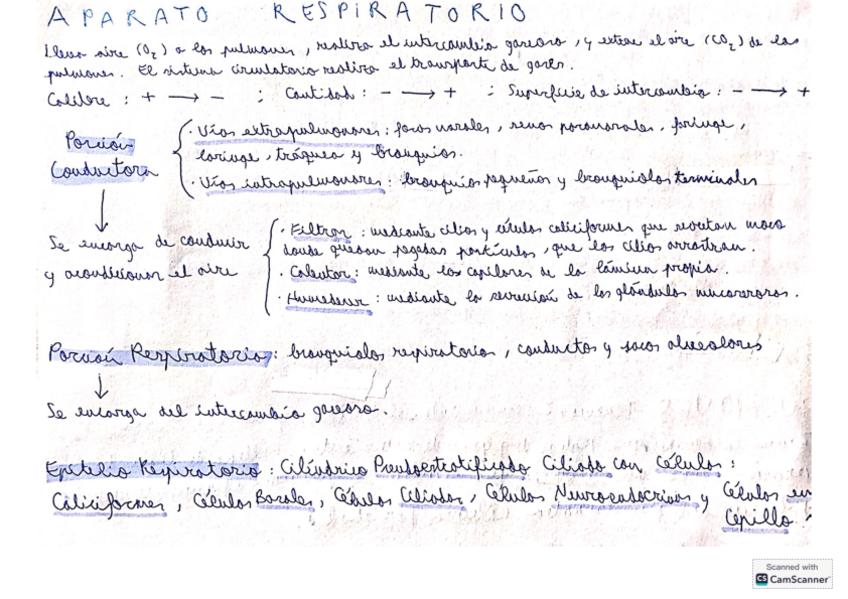 APARATO RESPIRATORIO
Lleva aire (O₂) a los pulmones, realiza el intercambio gaseoso, y extrae el aire (CO₂) de los
pulmones. El sistema circulatorio realiza el transporte de gases.
Calibre : + → - ; Cantidad : - → + ; Superficie de intercambio : - → +
Porción
Conductora
· Vías extrapulmonares : fosas nasales, senos paranasales, faringe,
laringe, tráquea y bronquios.
· Vías intrapulmonares : bronquios pequeños y bronquiolos terminales
Se encarga de conducir
y acondicionar el aire
· Filtrar : mediante cilios y células caliciformes que secretan moco
donde quedan pegadas partículas, que los cilios arrastran.
· Calentar : mediante los capilares de la lámina propia.
· Humedecer : mediante la secreción de las glándulas mucoserosas.
Porción Respiratoria : bronquiolos respiratorios, conductos y sacos alveolares
Se encarga del intercambio gaseoso.
Epitelio Respiratorio : Cilíndrico Pseudoestratificado Ciliado con Células :
Caliciformes, Células Basales, Células Ciliadas, Células Neuroendocrinas y Células en
Cepillo
Scanned with
CS CamScanner